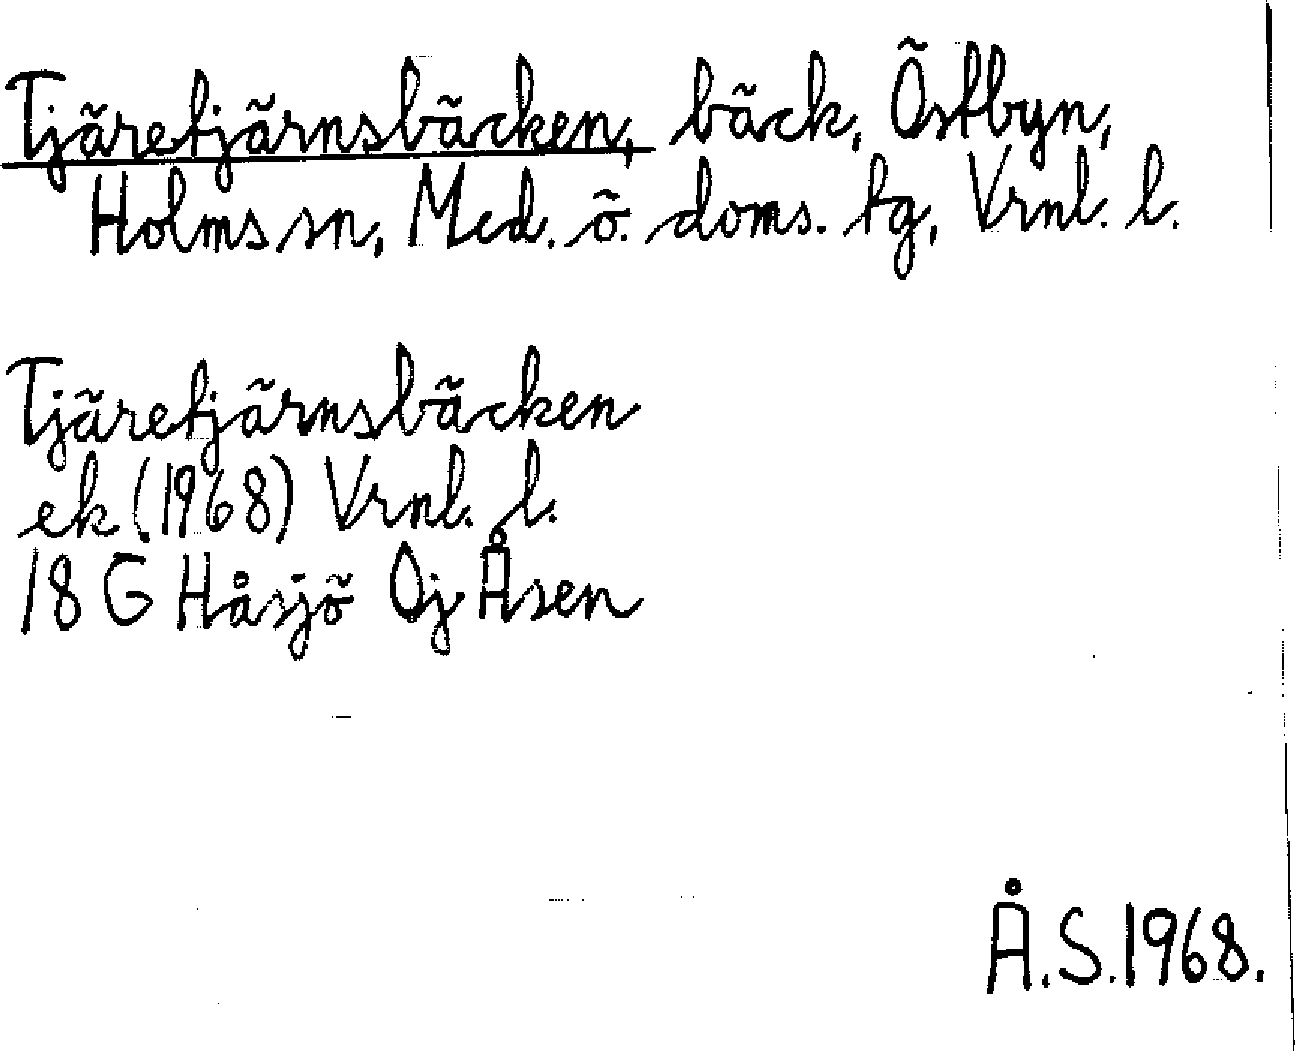 Tjäretjärnsbäcken, bäck, Östbyn,
Holms sn, Med. ö. doms. tg, Vrnl. l.
Tjäretjärnsbäcken
ek (1968) Vrnl. l.
18 G Håsjö 0j Åsen
Å.S. 1968.